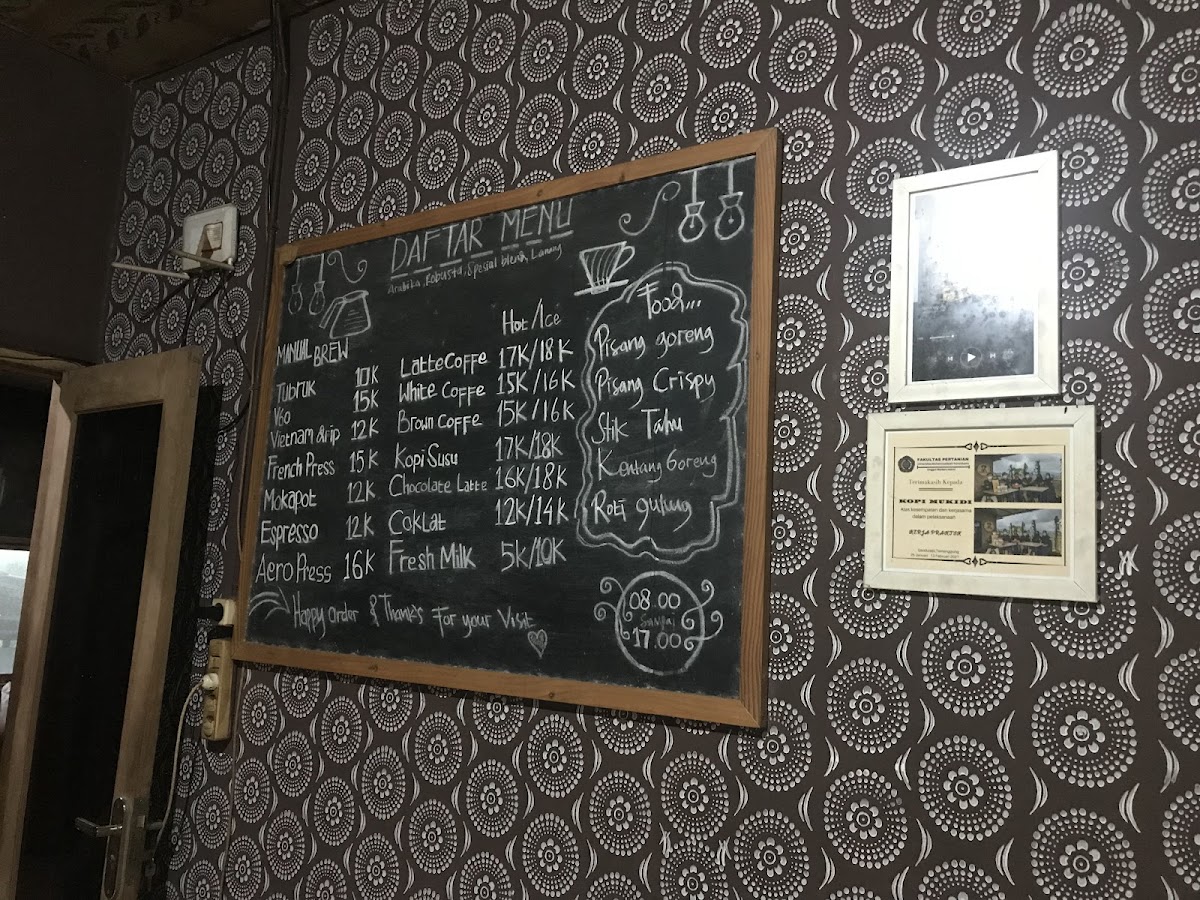 DAFTAR MENU
Arabika, Robusta, Spesial blend, Lanang
Hot/Ice
MANUAL BREW
Tubruk 10K
V60 15K
Vietnam drip 12K
French Press 15K
Mokapot 12K
Espresso 12K
Aero Press 16K
Latte Coffe 17K/18K
White Coffe 15K/16K
Brown Coffe 15K/16K
Kopi Susu 17K/18K
Chocolate Latte 16K/18K
Coklat 12K/14K
Fresh Milk 5K/10K
Food...
Pisang goreng
Pisang Crispy
Stik Tahu
Kentang Goreng
Roti gulung
Happy order & Thanks For your Visit
08.00
Sampai
17.00
FAKULTAS PERTANIAN
Terimakasih Kepada
KOPI MUKIDI
Atas kesempatan dan kerjasama
dalam pelaksanaan
KERJA PRAKTEK